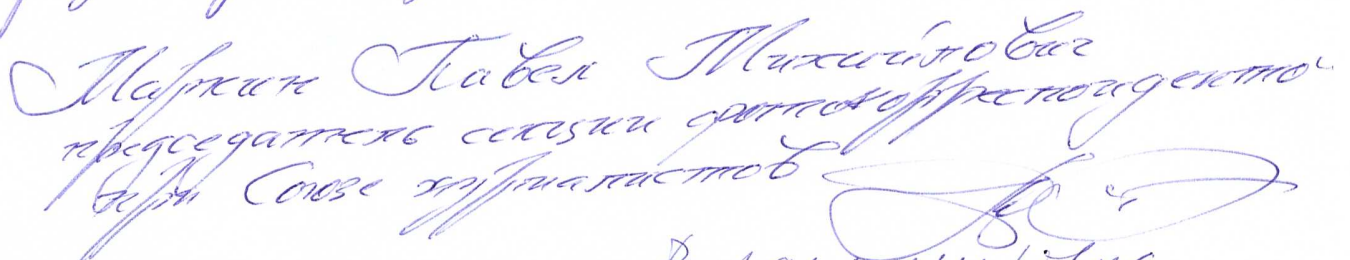 Маркин Павел Михайлович
председатель секции фотокорреспонденто
при Союзе журналистов